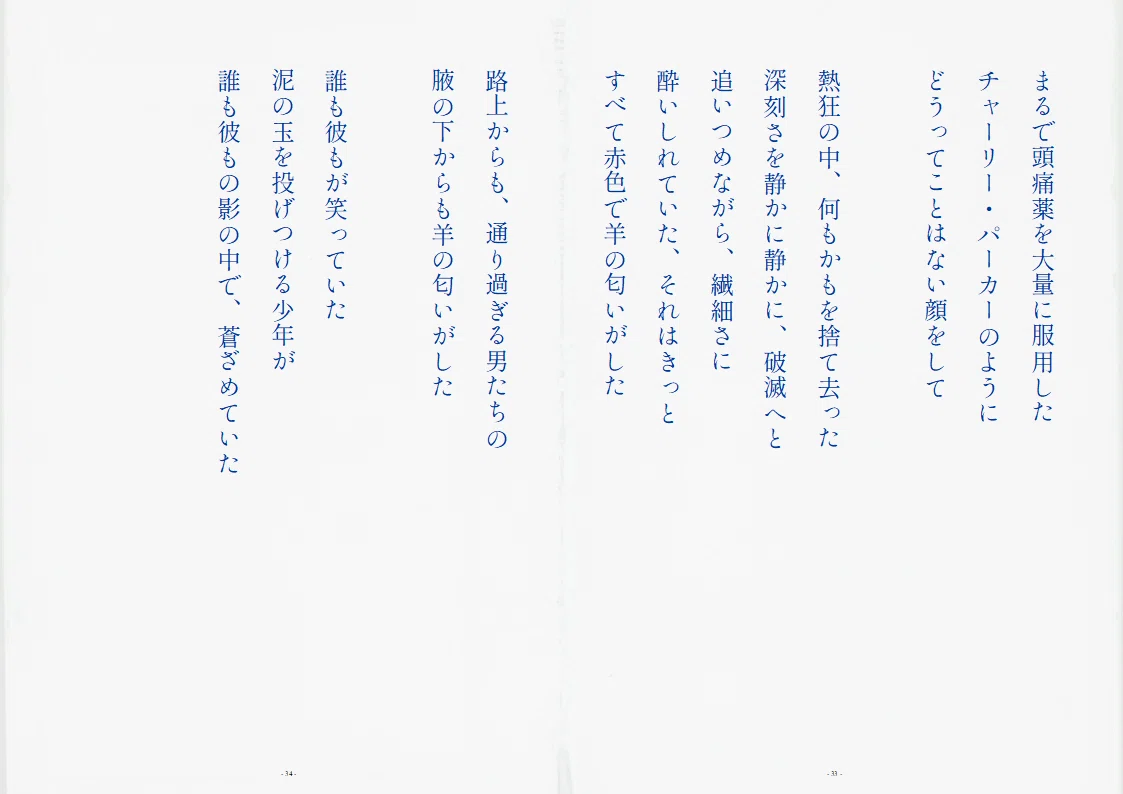 まるで頭痛薬を大量に服用した
チャーリー・パーカーのように
どうってことはない顔をして
熱狂の中、何もかもを捨て去った
深刻さを静かに静かに、破滅へと
追いつめながら、繊細さに
酔いしれていた、それはきっと
すべて赤色で羊の匂いがした
- 33 -
路上からも、通り過ぎる男たちの
腋の下からも羊の匂いがした
誰も彼もが笑っていた
泥の玉を投げつける少年が
誰も彼もの影の中で、蒼ざめていた
- 34 -